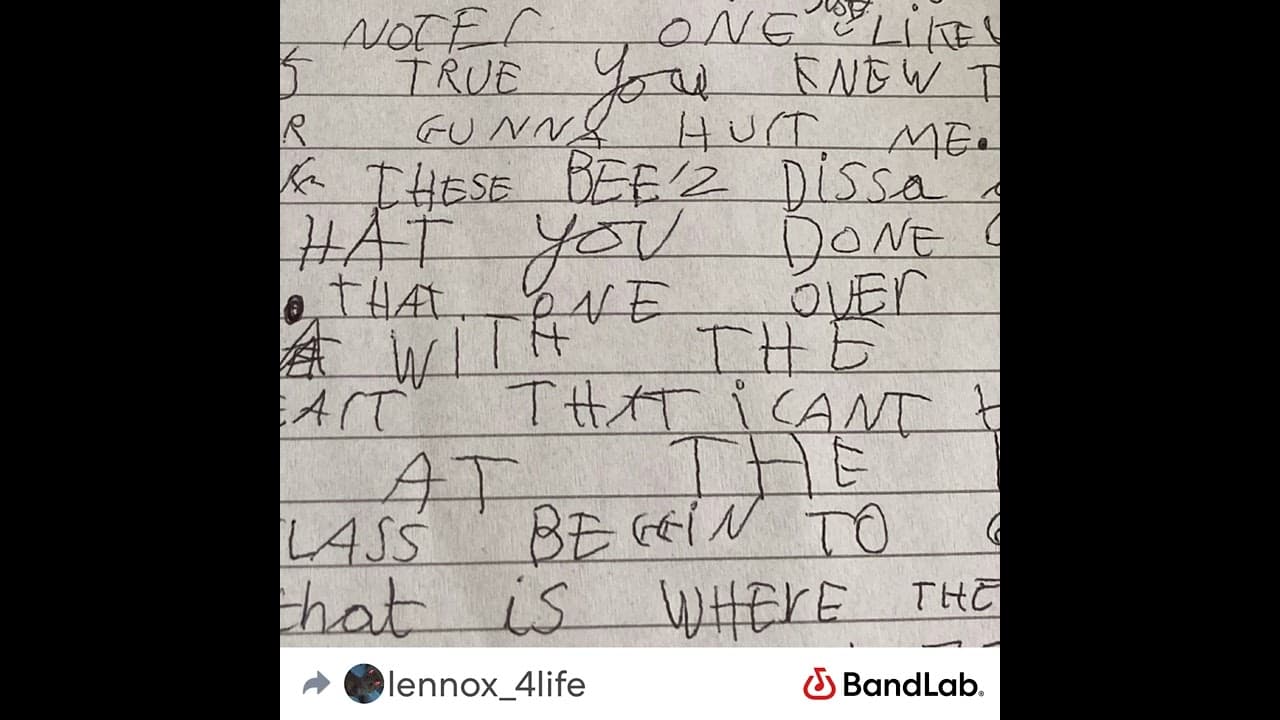 NOTES ONE JUST LIKE
TRUE YOU KNEW T
R GUNNA HURT ME.
THESE BEE'Z DISSA
HAT YOU DONE
THAT ONE OVER
WITH THE
EART THAT i CANT
AT THE
LASS BEGGiN TO
that is WHERE THE
lennox_4life
BandLab